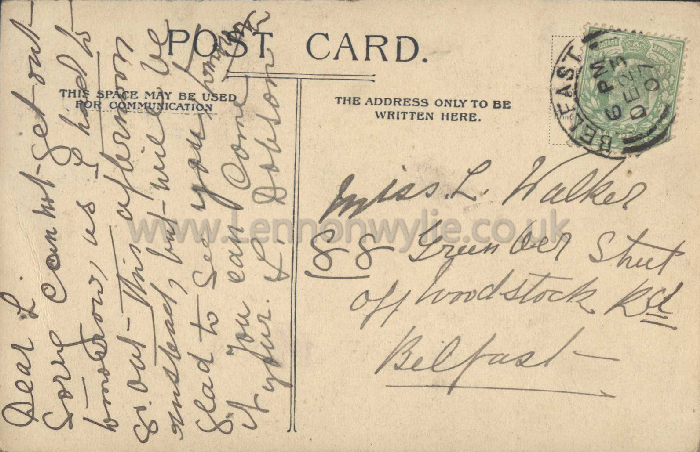 POST CARD.
THIS SPACE MAY BE USED
FOR COMMUNICATION
THE ADDRESS ONLY TO BE
WRITTEN HERE.
BELFAST
6 PM
DE 25
07
Dear L
Sorry I cannot get out
tomorrow, as I had to
go out this afternoon
instead, but will be
glad to see you tomorrow
if you can come
yours. L Dobson
Miss L. Walker
88 Street
off Woodstock Rd
Belfast
www.Lennonwylie.co.uk